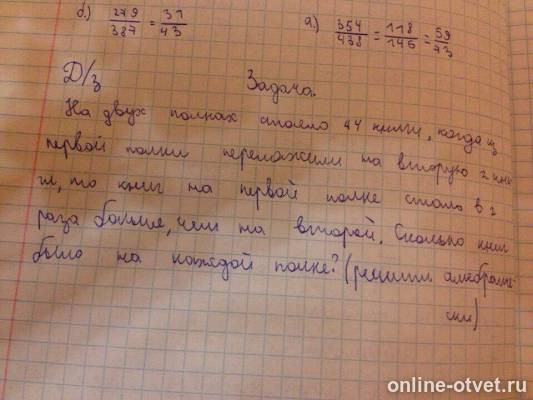 б.) 279/387 = 31/43
а) 354/438 = 118/146 = 59/73
Д/з Задача.
На двух полках стояло 44 книги, когда из
первой полки переложили на вторую 2 кни
ги, то книг на первой полке стало в 2
раза больше, чем на второй. Сколько книг
было на каждой полке? (решити алебраиче
ски)
online-otvet.ru